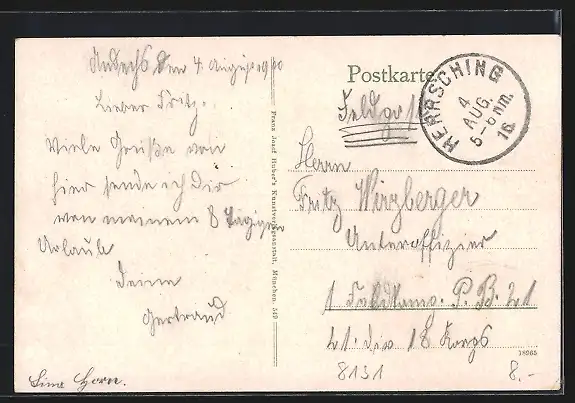 Andechs den 4. August 19
Lieber Fritz.
Viele Grüße von
hier sende ich Dir
von meinem 8 tägigen
Urlaub
Deine
Gertraud
Horn.
Franz Josef Huber's Kunstverlagsanstalt, München. 549
Postkarte
Feldpost
HERRSCHING
4
AUG.
5-6 Nm.
16
Herrn
Fritz Wirzberger
Unteroffizier
1 P. B. 21
21. Div 18 Korps
18265
8131
8.-